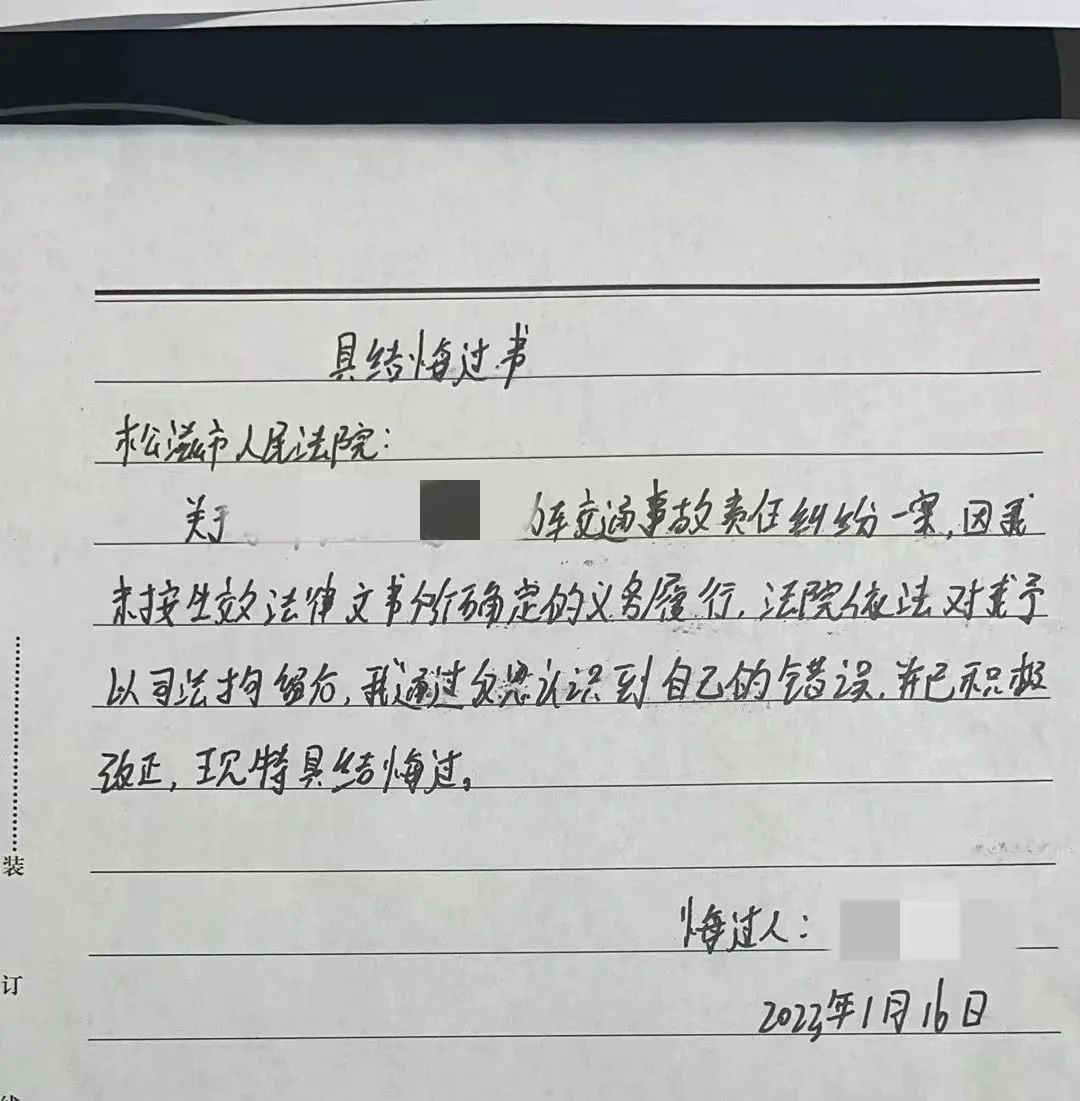 具结悔过书
松滋市人民法院：
关于 车交通事故责任纠纷一案，因我
未按生效法律文书所确定的义务履行，法院依法对我予
以司法拘留后，我通过反思认识到自己的错误，并已积极
改正，现特具结悔过。
悔过人：
2023年1月16日
装
订
线